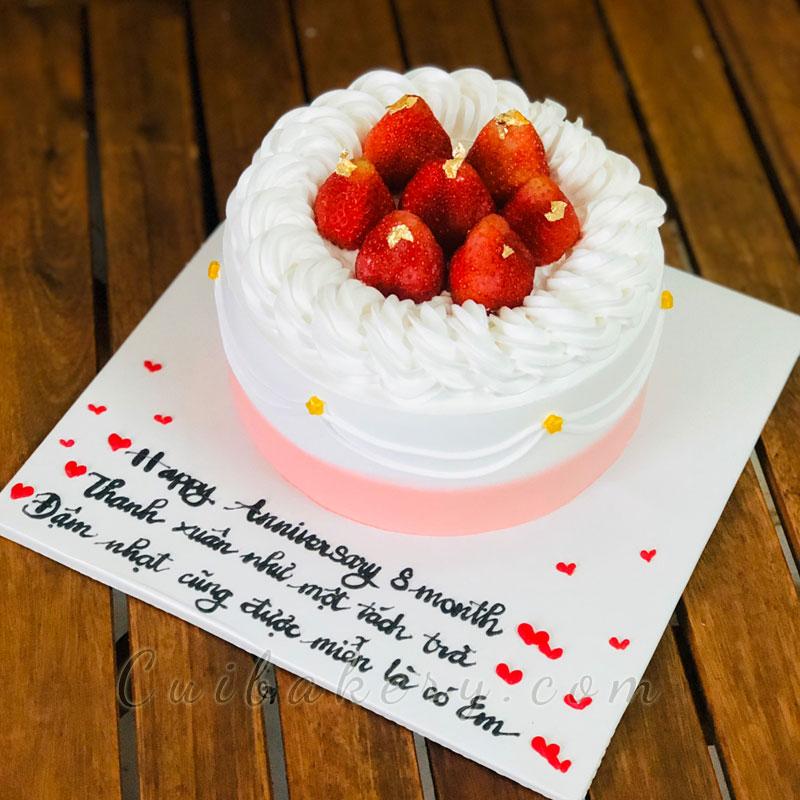 Happy Anniversary 8 month
Thanh xuân như một tách trà
Đậm nhạt cũng được miễn là có Em
Cuibakery.com